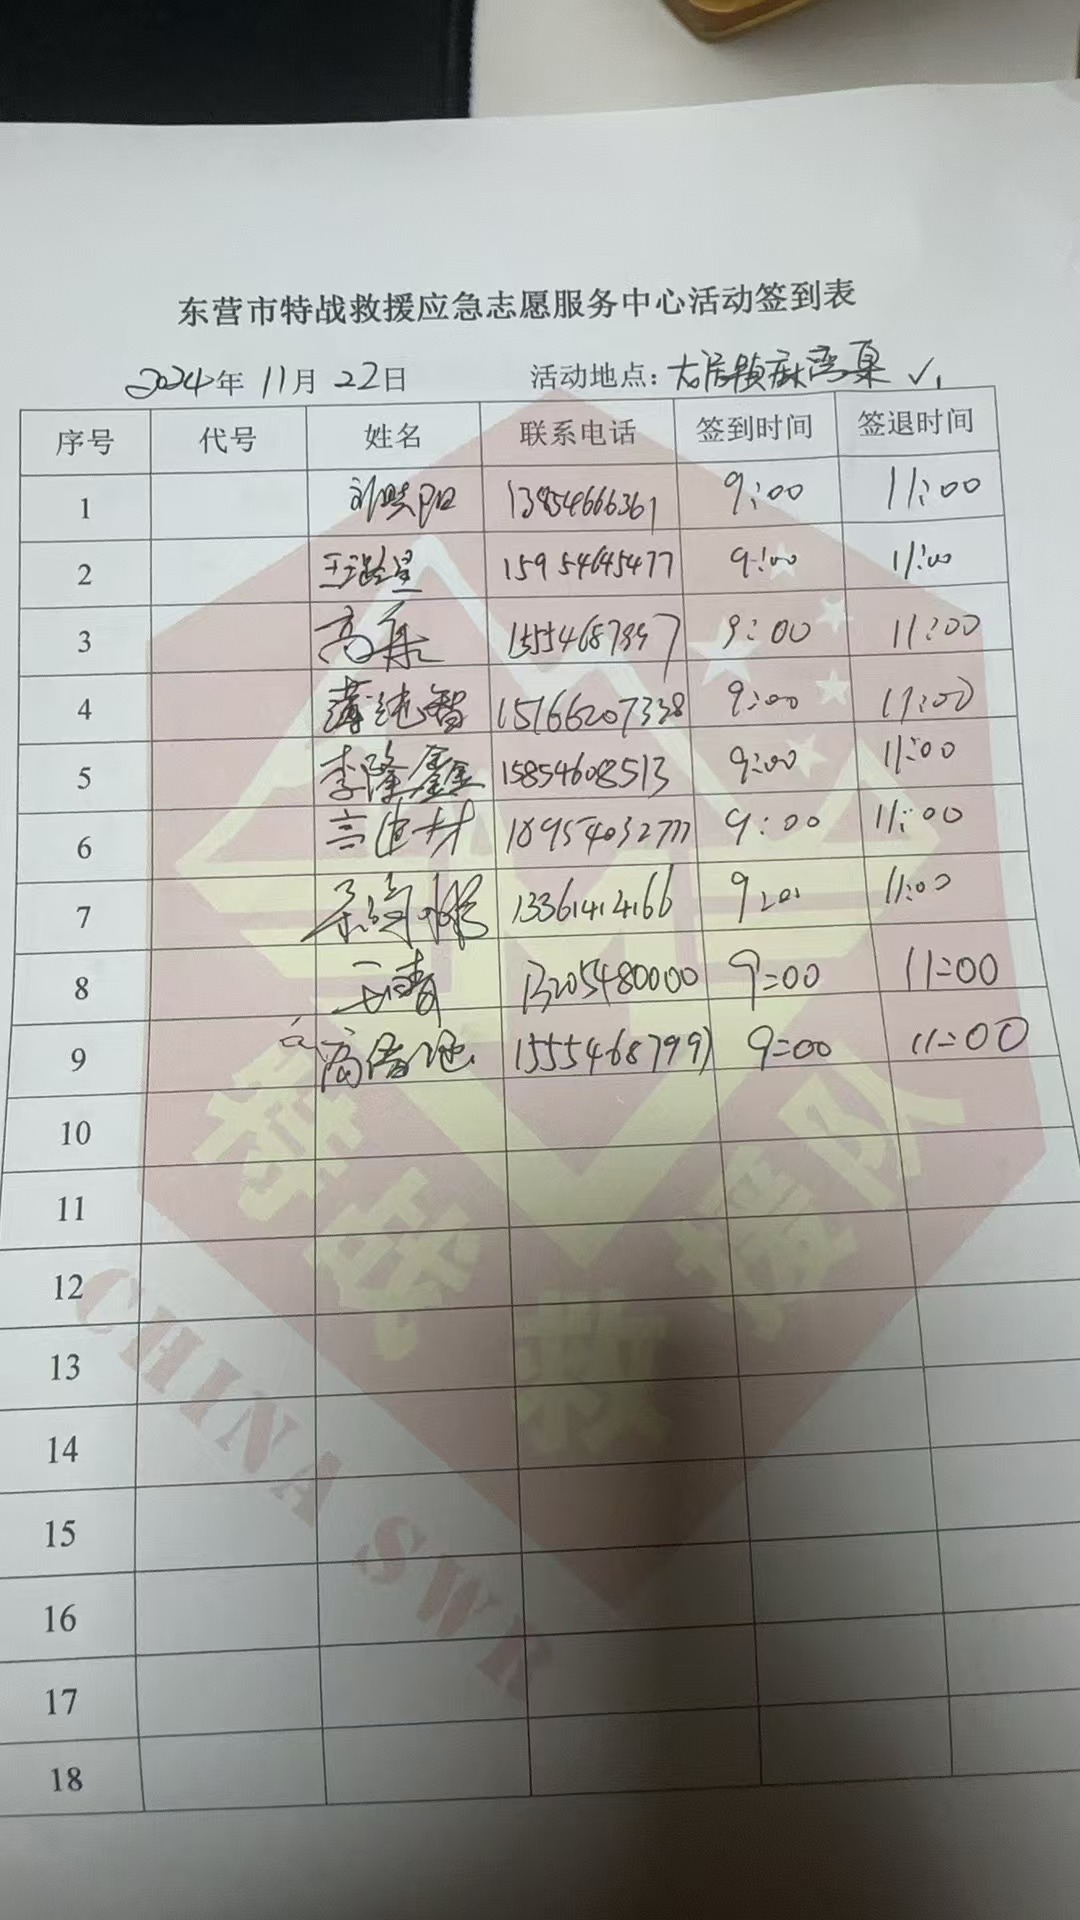 东营市特战救援应急志愿服务中心活动签到表
2024年 11月 22日 活动地点：龙居镇麻湾集 ✓
序号 代号 姓名 联系电话 签到时间 签退时间
1 刘晓阳 13954666361 9:00 11:00
2 王璐星 15954645477 9:00 11:00
3 高 15554687997 9:00 11:00
4 薄纯智 15166207338 9:00 11:00
5 李隆鑫 15854608513 9:00 11:00
6 高建材 18954032777 9:00 11:00
7 13361414166 9:00 11:00
8 王清 13205480000 9:00 11:00
9 15554687997 9:00 11:00
10
11
12
13
14
15
16
17
18
特战救援队
CHINA SWR